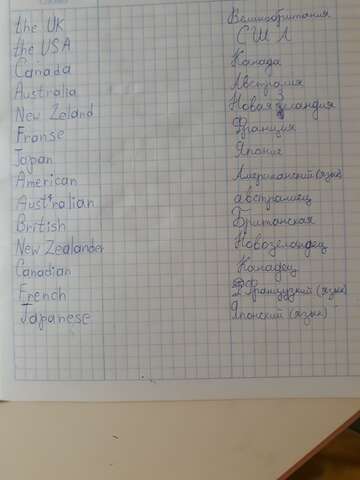 the UK Великобритания
the USA США
Canada Канада
Australia Австралия
New Zeland Новая Зеландия
Franse Франция
Japan Япония
American Американский (язык)
Australian австралиец
British Британская
New Zealander Новозеландец
Canadian Канадец
French Французкий (язык)
Japanese Японский (язык)